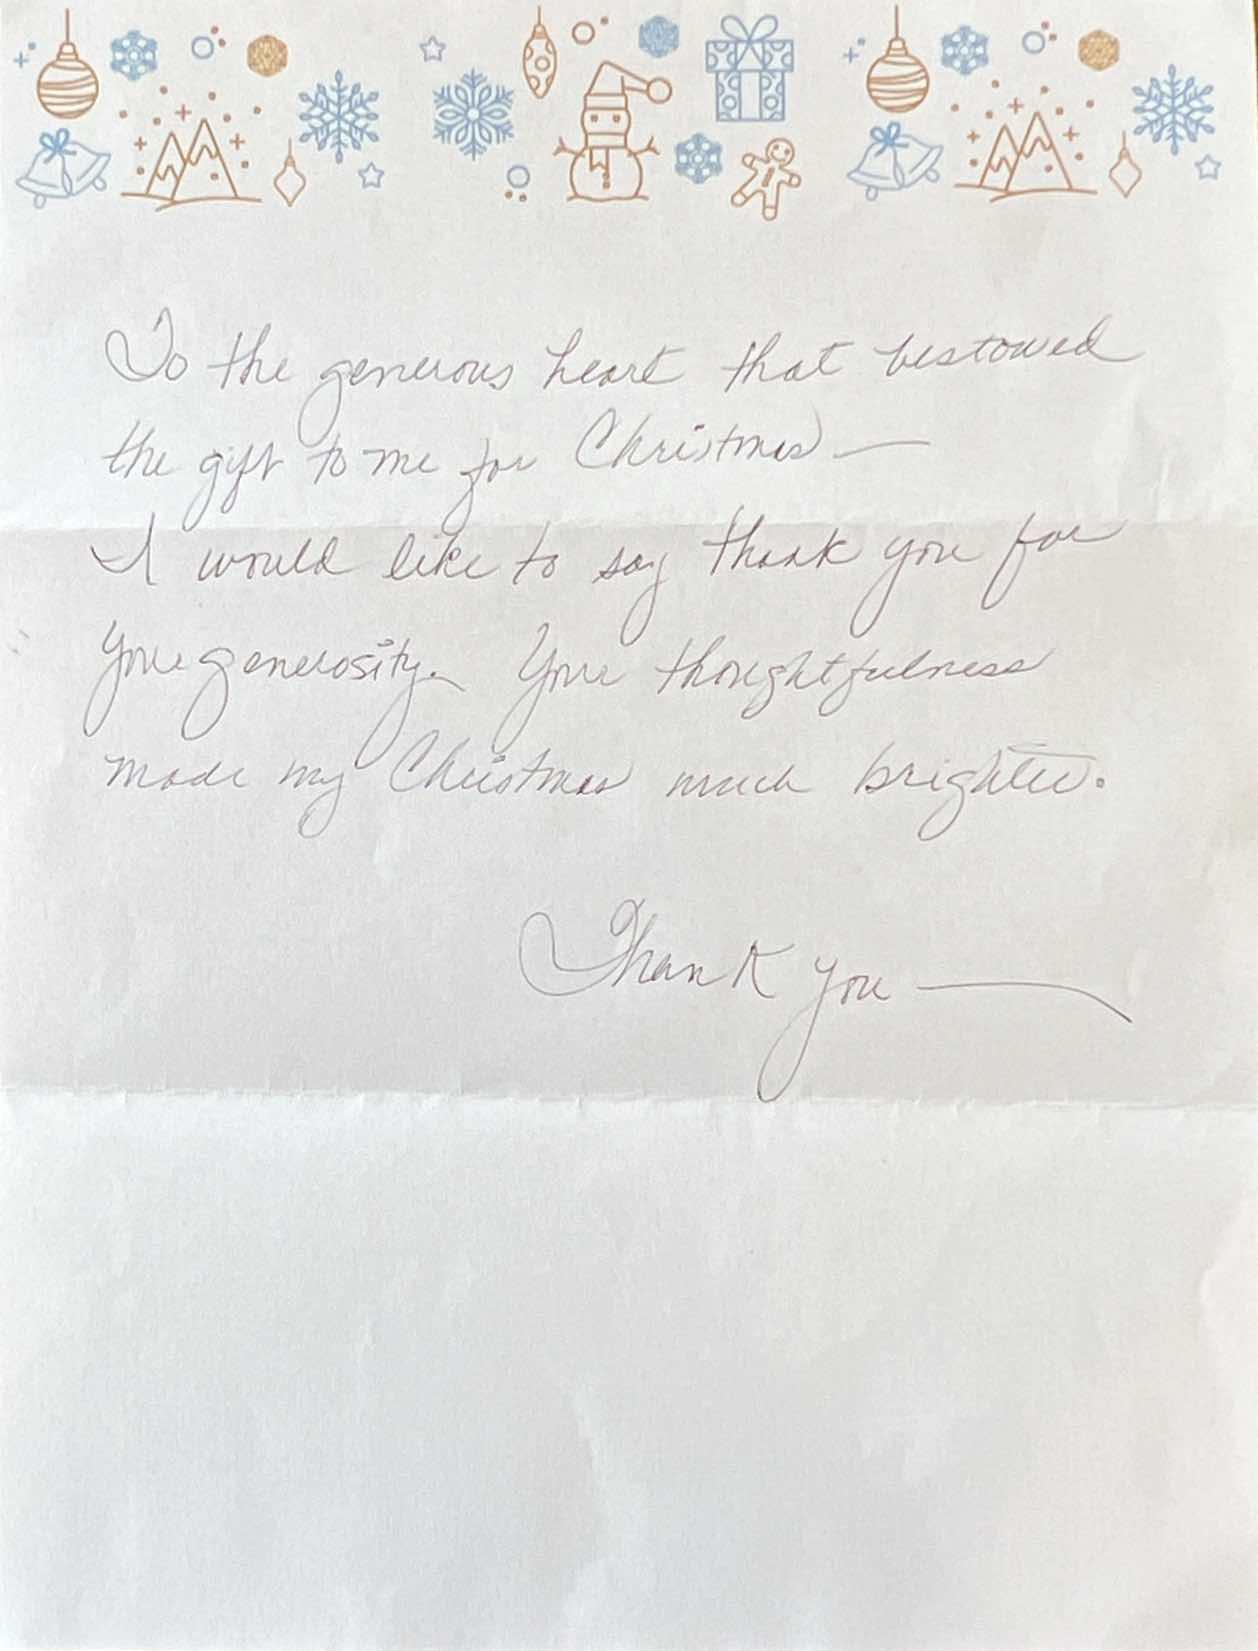 To the generous heart that bestowed
the gift to me for Christmas —
I would like to say thank you for
your generosity. Your thoughtfulness
made my Christmas much brighter.
Thank you —